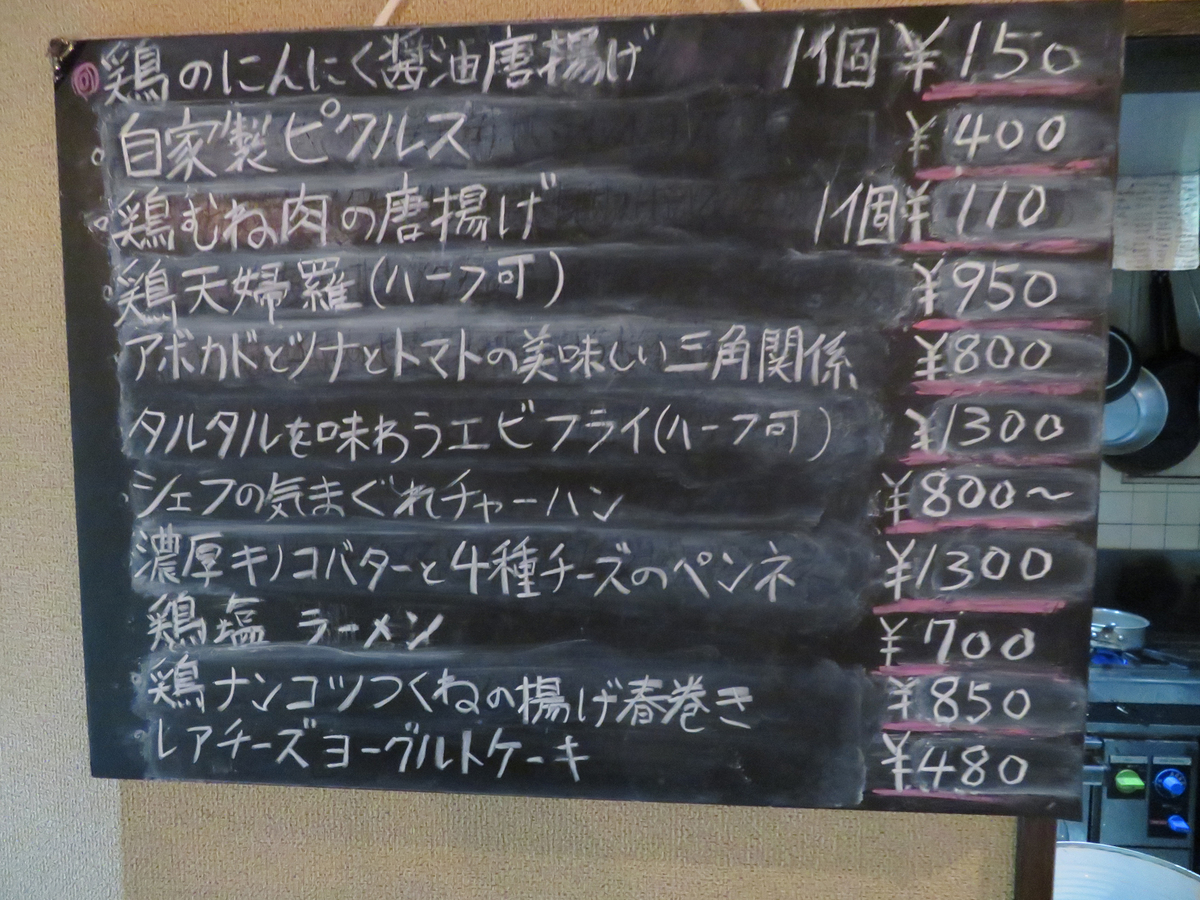 鶏のにんにく醤油唐揚げ 1個 ¥150
自家製ピクルス ¥400
鶏むね肉の唐揚げ 1個 ¥110
鶏天婦羅(ハーフ可) ¥950
アボカドとツナとトマトの美味しい三角関係 ¥800
タルタルを味わうエビフライ(ハーフ可) ¥1300
シェフの気まぐれチャーハン ¥800～
濃厚キノコバターと4種チーズのペンネ ¥1300
鶏塩 ラーメン ¥700
鶏ナンコツつくねの揚げ春巻き ¥850
レアチーズヨーグルトケーキ ¥480